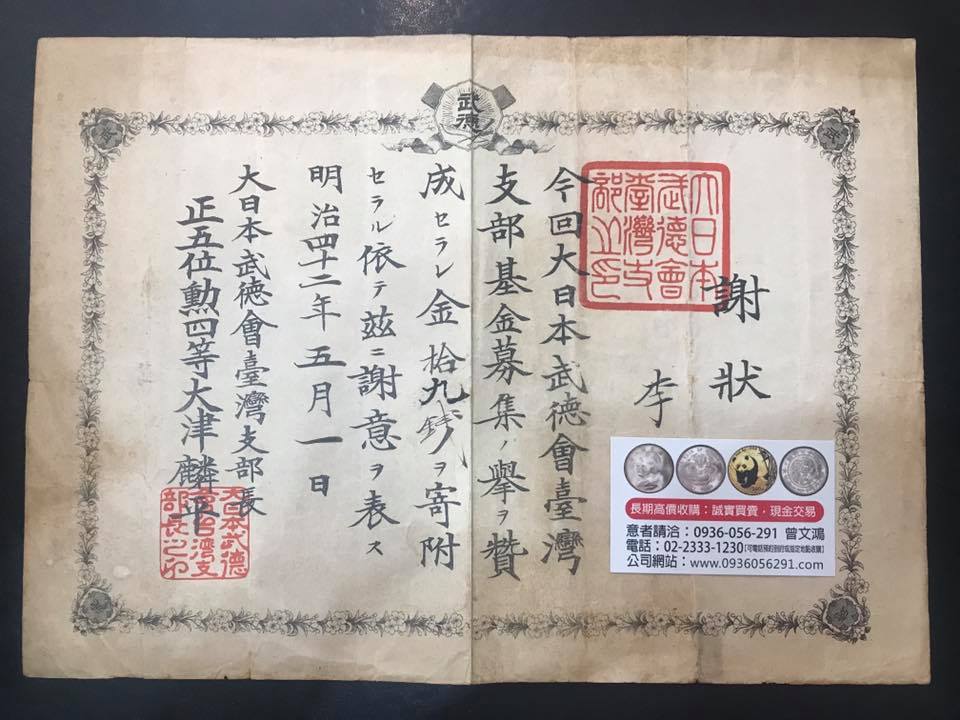 武德
謝狀
李
今回大日本武德會臺灣
支部基金募集ノ擧ヲ贊
成セラレ金拾九錢ヲ寄附
セラル依テ茲ニ謝意ヲ表ス
明治四十二年五月一日
大日本武德會臺灣支部長
正五位勲四等大津麟平
大日本
武德會
臺灣支
部之印
大日本武德
會台灣支
部長之印
長期高價收購：誠實買賣，現金交易
意者請洽：0936-056-291 曾文鴻
電話：02-2333-1230[可電話預約到府或指定地點收購]
公司網站：www.0936056291.com